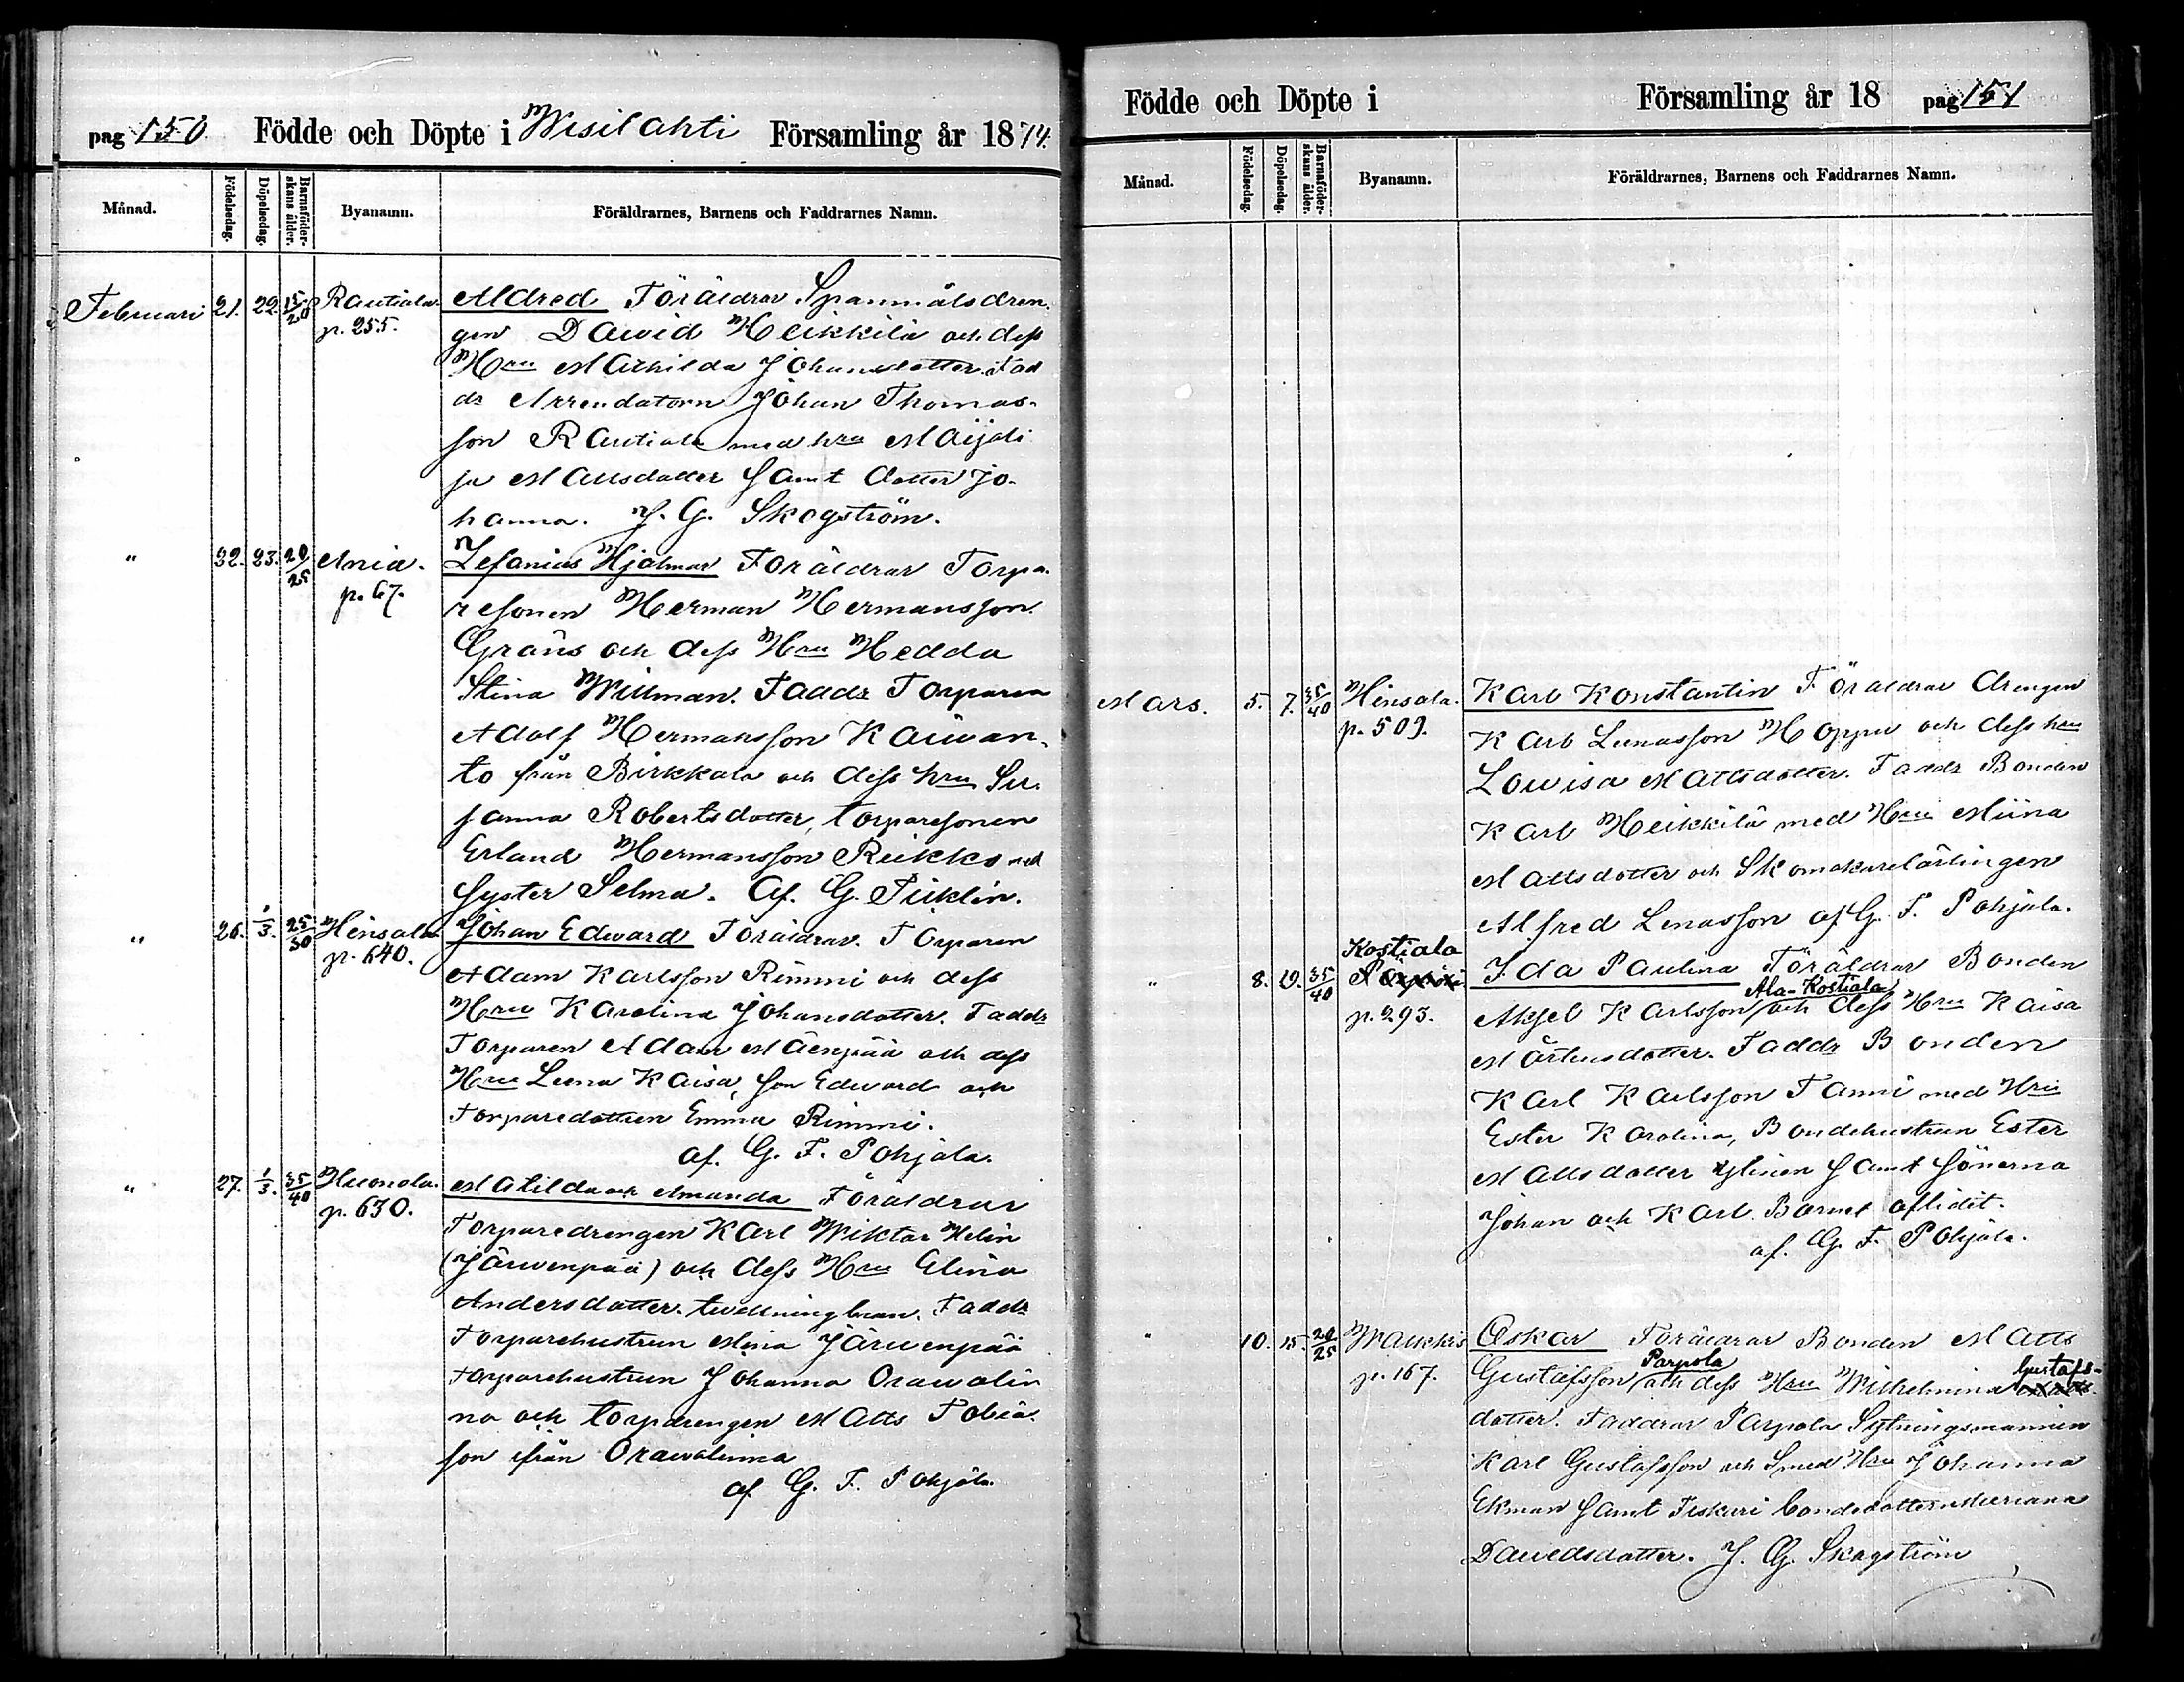 pag 150. Födde och Döpte i Wesilahti Församling år 1874.
Månad. Födelsedag. Döpelsedag. Barnaföderskans ålder. Byanamn. Föräldrarnes, Barnens och Faddrarnes Namn.
Februari 21. 22. 15/20 Rautiala p. 255. Aldred Föräldrar Spanmålsdren-
gen Dawid Heikkilä och dess
Hru Mathilda Johansdotter. Fad
dr Arrendatorn Johan Thomas-
son Rautiala med hru Maijali
sa Mattsdotter samt dotter Jo-
hanna. J. G. Skogström.
" 22. 23. 20/25 Ania. p. 67. Zefanias Hjalmar Föräldrar Torpa-
resonen Herman Hermansson
Gräns och dess Hru Hedda
Stina Willman. Faddr Torparen
Adolf Hermansson Kaiwan-
to från Birkkala och dess hru Su-
sanna Robertsdotter, torparesonen
Erland Hermansson Reikko med
syster Selma. Af. G. Piiklin.
" 26. 1/3. 25/30 Hinsala p. 640. Johan Edward Föräldrar. Torparen
Adam Karlsson Rimmi och dess
Hru Karolina Johansdotter. Faddr
Torparen Adam Mäenpää och dess
Hru Leena Kaisa, son Edward och
Torparedottren Emma Rimmi.
af. G. F. Pohjala.
" 27. 1/3. 35/40 Huonola. p. 630. Matilda och Amanda Föräldrar
Torparedrengen Karl Wiktor Helin
(Järwenpää) och dess Hru Elina
Andersdotter. twillning barn. Faddr
Torparehustrun Miina Järwenpää
torparehustrun Johanna Orawalin
na och torpdrengen Matts Tobia-
son ifrån Orawalinna
af G. F. Pohjala.
Födde och Döpte i Församling år 18 pag 151
Månad. Födelsedag. Döpelsedag. Barnaföderskans ålder. Byanamn. Föräldrarnes, Barnens och Faddrarnes Namn.
Mars. 5. 7. 35/40 Hinsala. p. 509. Karl Konstantin Föräldrar drengen
Karl Lenasson Hoppu och dess hru
Lowisa Mattsdotter. Faddr Bonden
Karl Heikkilä med Hru Miina
Mattsdotter och Skomakarelärlingen
Alfred Lenasson af G. F. Pohjala.
Kostiala
" 8. 19. 35/40 p. 293. Ida Paulina Föräldrar Bonden
Ala-Kostiala
Aksel Karlsson och dess Hru Kaisa
Mårtensdotter. Faddr Bonden
Karl Karlsson Tanni med Hru
Ester Karolina, Bondehustrun Ester
Mattsdotter Ylinen samt sönerna
Johan och Karl. Barnet aflidit.
af. G. F. Pohjala.
" 10. 15. 20/25 Wakkis p. 167. Oskar Föräldrar Bonden Matts
Parpola Gustafs-
Gustafsson och dess Hru Wilhelmina
dotter. Faddrar Parpola Sytningsmannen
Karl Gustafsson och Smed Hru Johanna
Ekman samt Fiskari bondedotter Mariana
Dawidsdotter. J. G. Skogström